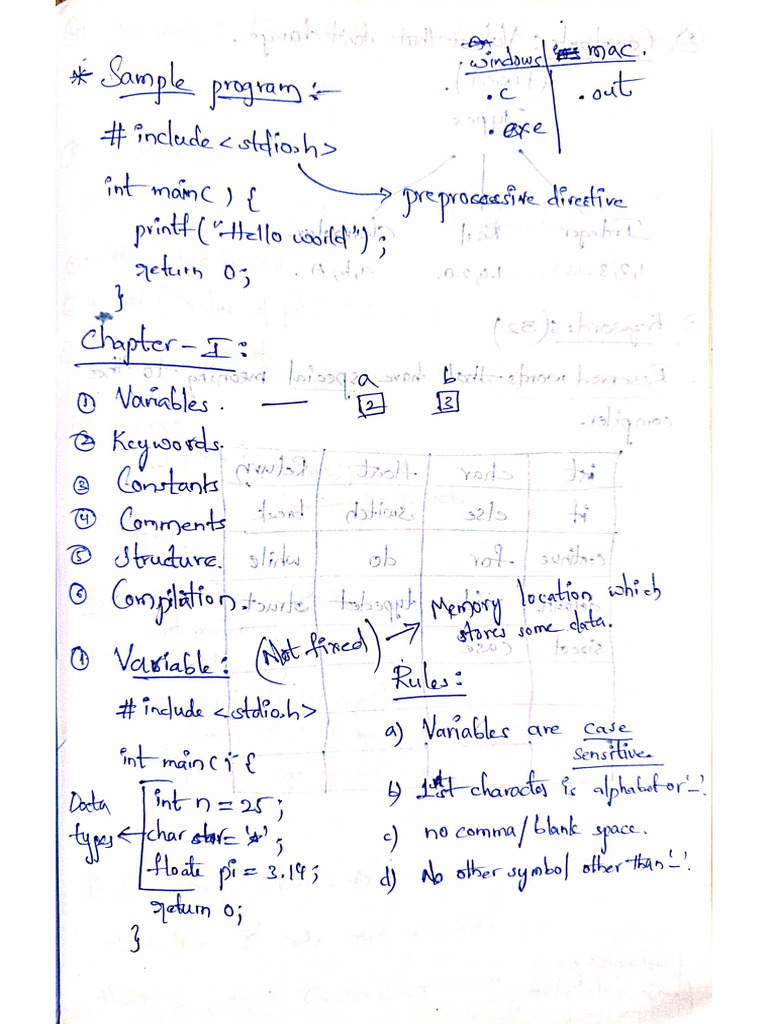 * Sample program :-
windows / mac.
.c .out
.exe
# include <stdio.h>
int main( ) {
preprocessive directive
printf("Hello world");
return 0;
}
Chapter - I :
① Variables. — a 2 b 3
② Keywords.
③ Constants
④ Comments
⑤ Structure.
⑥ Compilation.
① Variable : (Not fixed) → Memory location which
stores some data.
# include <stdio.h>
int main( ) {
Data types ← int n = 25;
char star = '*';
floate pi = 3.14;
return 0;
}
Rules :
a) Variables are case
sensitive.
b) 1st character is alphabet or '_'.
c) no comma/blank space.
d) No other symbol other than '_'.